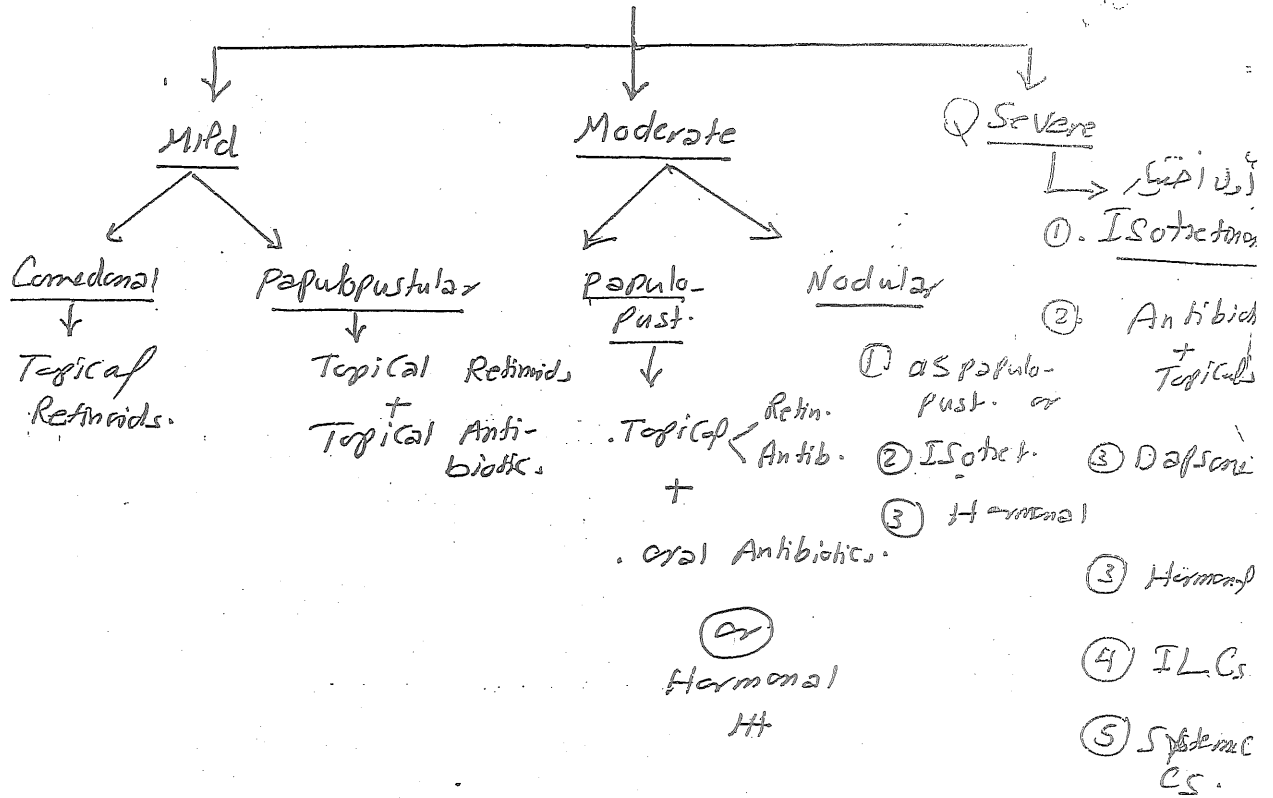 Mild
Comedonal
Topical
Retinoids.
Papulopustular
Topical Retinoids
+
Topical Anti-
biotics.
Moderate
Papulo-
Pust.
.Topical < Retin.
Antib.
+
. oral Antibiotics.
or
Hormonal
ttt
Nodular
① as papulo-
pust. or
② Isotret.
③ Hormonal
Q Severe
أول اختيار
①. Isotretinoi
②. Antibiot
+
Topicals
③ Dapsone
③ Hormonal
④ ILCs
⑤ Systemic
CS.